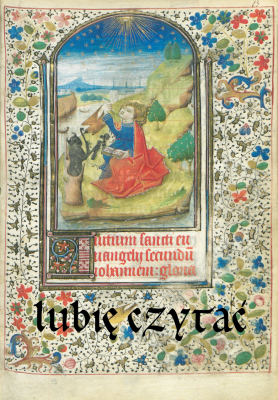 Initium sancti eu
uangelij secundū
iohannem: gloria
lubię czytać